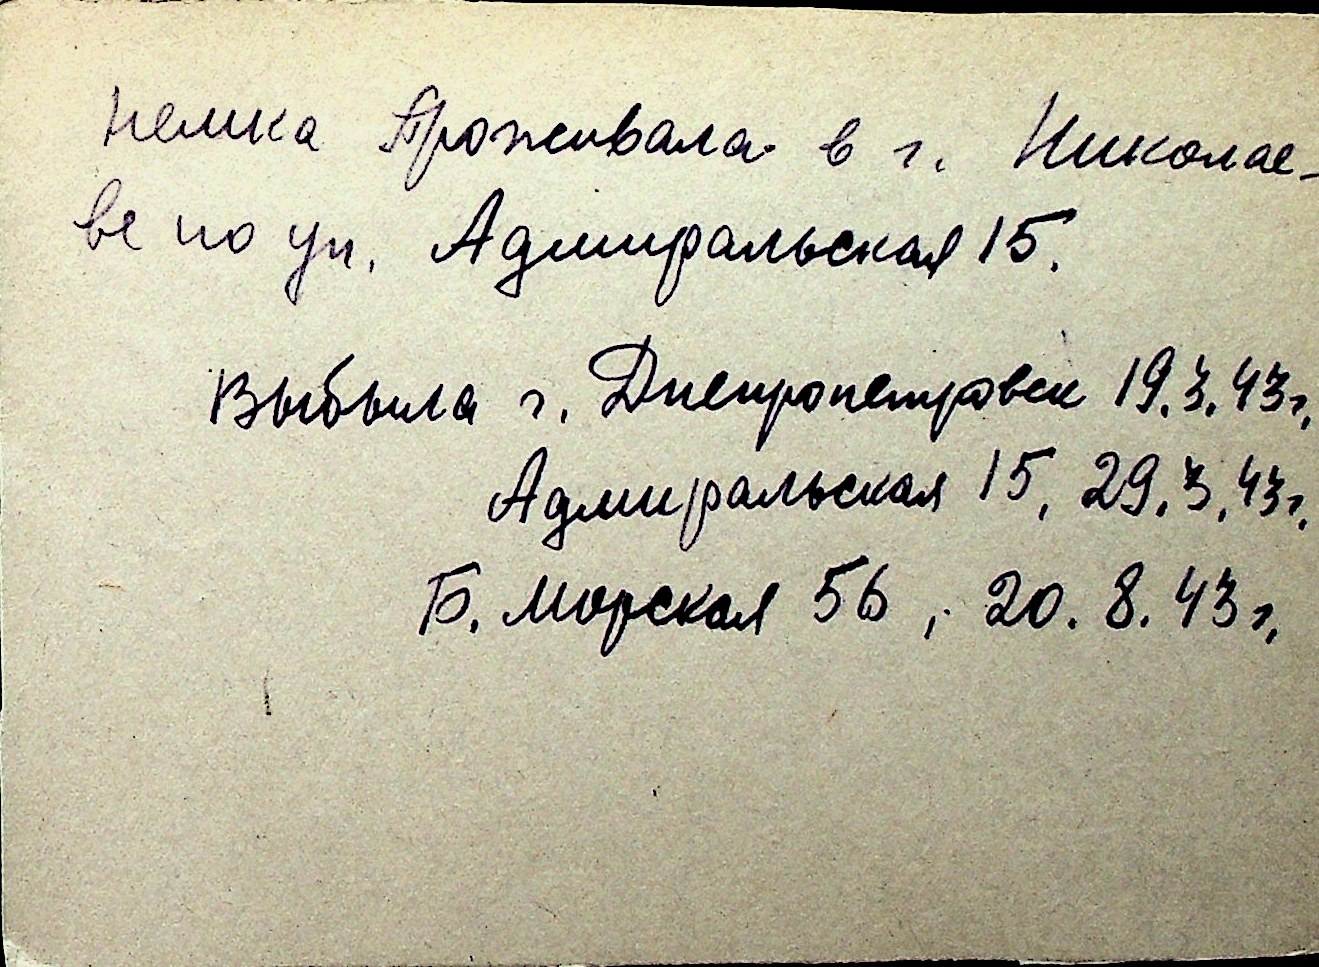 немка Проживала в г. Николае-
ве по ул. Адмиральская 15.
Выбыла г. Днепропетровск 19.3.43г.
Адмиральская 15, 29.3.43г.
Б. Морская 56, 20.8.43г.